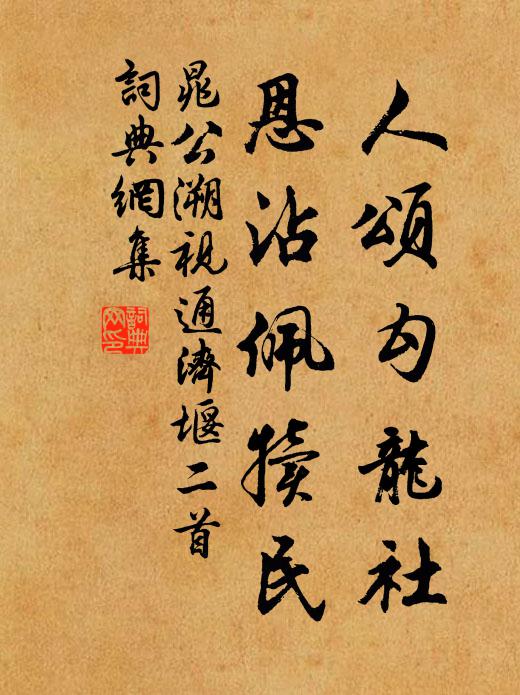 人頌勾龍社
恩沾佩犢民
晁公溯視通濟堰二首
詞典網集
詞典
网印